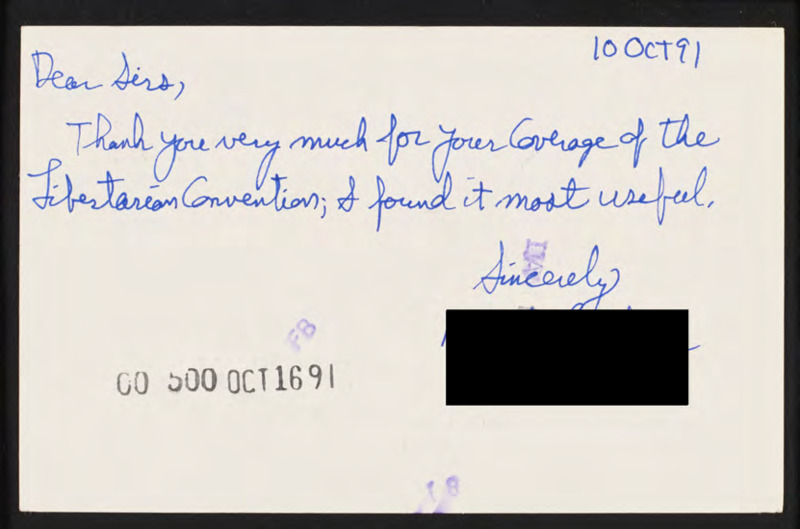 10 OCT 91
Dear Sirs,
Thank you very much for your Coverage of the
Libertarian Convention; I found it most useful.
Sincerely
F8
00 500 OCT 16 91